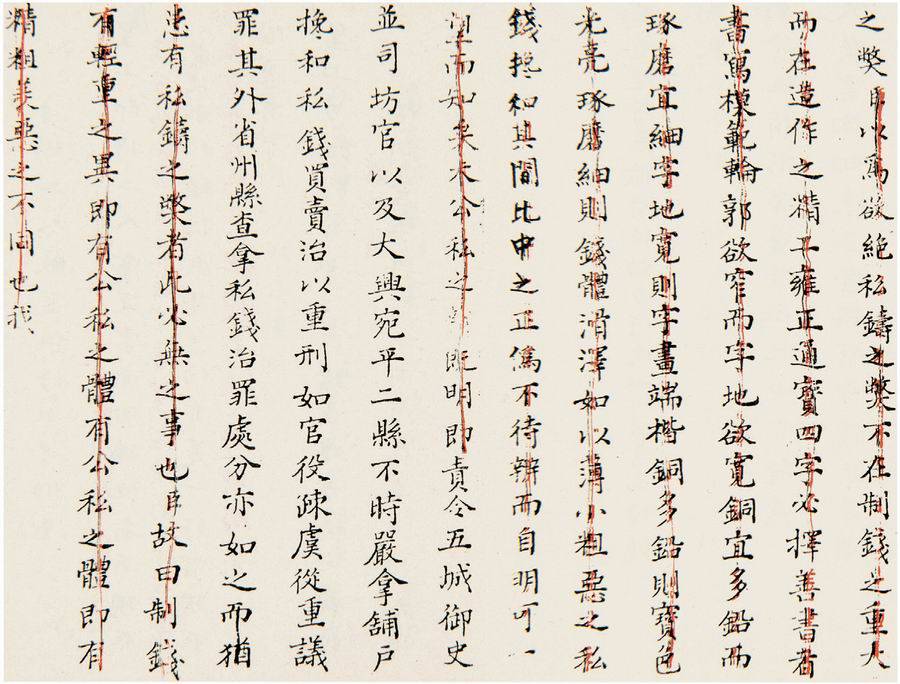 之獘臣以為欲絕私鑄之獘不在制錢之重大
而在造作之精工雍正通寳四字必擇善書者
書寫模範輪郭欲窄而字地欲寛銅宜多鉛而
琢磨宜細字地寛則字畫端楷銅多鉛則寳色
光亮琢磨細則錢體滑澤如以薄小粗惡之私
錢攙和其間比中之正偽不待辨而自明可一
望而知矣夫公私之既明即責令五城御史
並司坊官以及大興宛平二縣不時嚴拿舖戶
攙和私錢買賣治以重刑如官役疎虞從重議
罪其外省州縣查拿私錢治罪處分亦如之而猶
患有私鑄之獘者此必無之事也臣故曰制錢
有輕重之異即有公私之體有公私之體即有
精粗美惡之不同也我